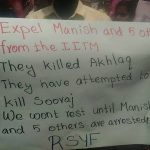 Expel Manish and 5 ot
from the IITM
They killed Akhlaq
They have attempted to
kill Sooraj
We wont rest until Manish
and 5 others are arrested
RSYF